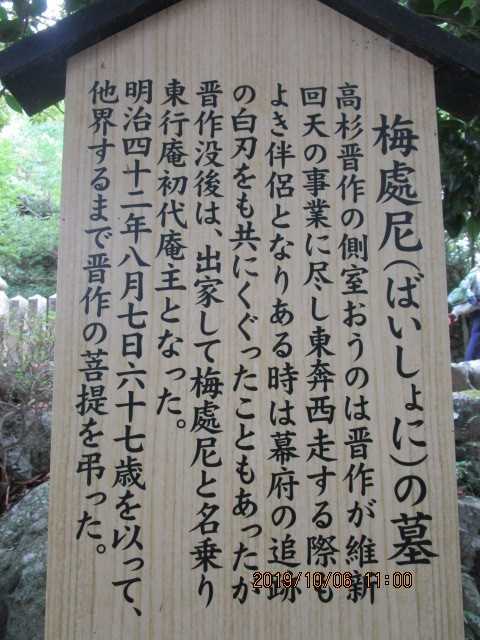 梅處尼(ばいしょに)の墓
高杉晋作の側室おうのは晋作が維新
回天の事業に尽し東奔西走する際も
よき伴侶となりある時は幕府の追跡
の白刃をも共にくぐったこともあったが
晋作没後は、出家して梅處尼と名乗り
東行庵初代庵主となった。
明治四十二年八月七日六十七歳を以って、
他界するまで晋作の菩提を弔った。
2019/10/06 11:00